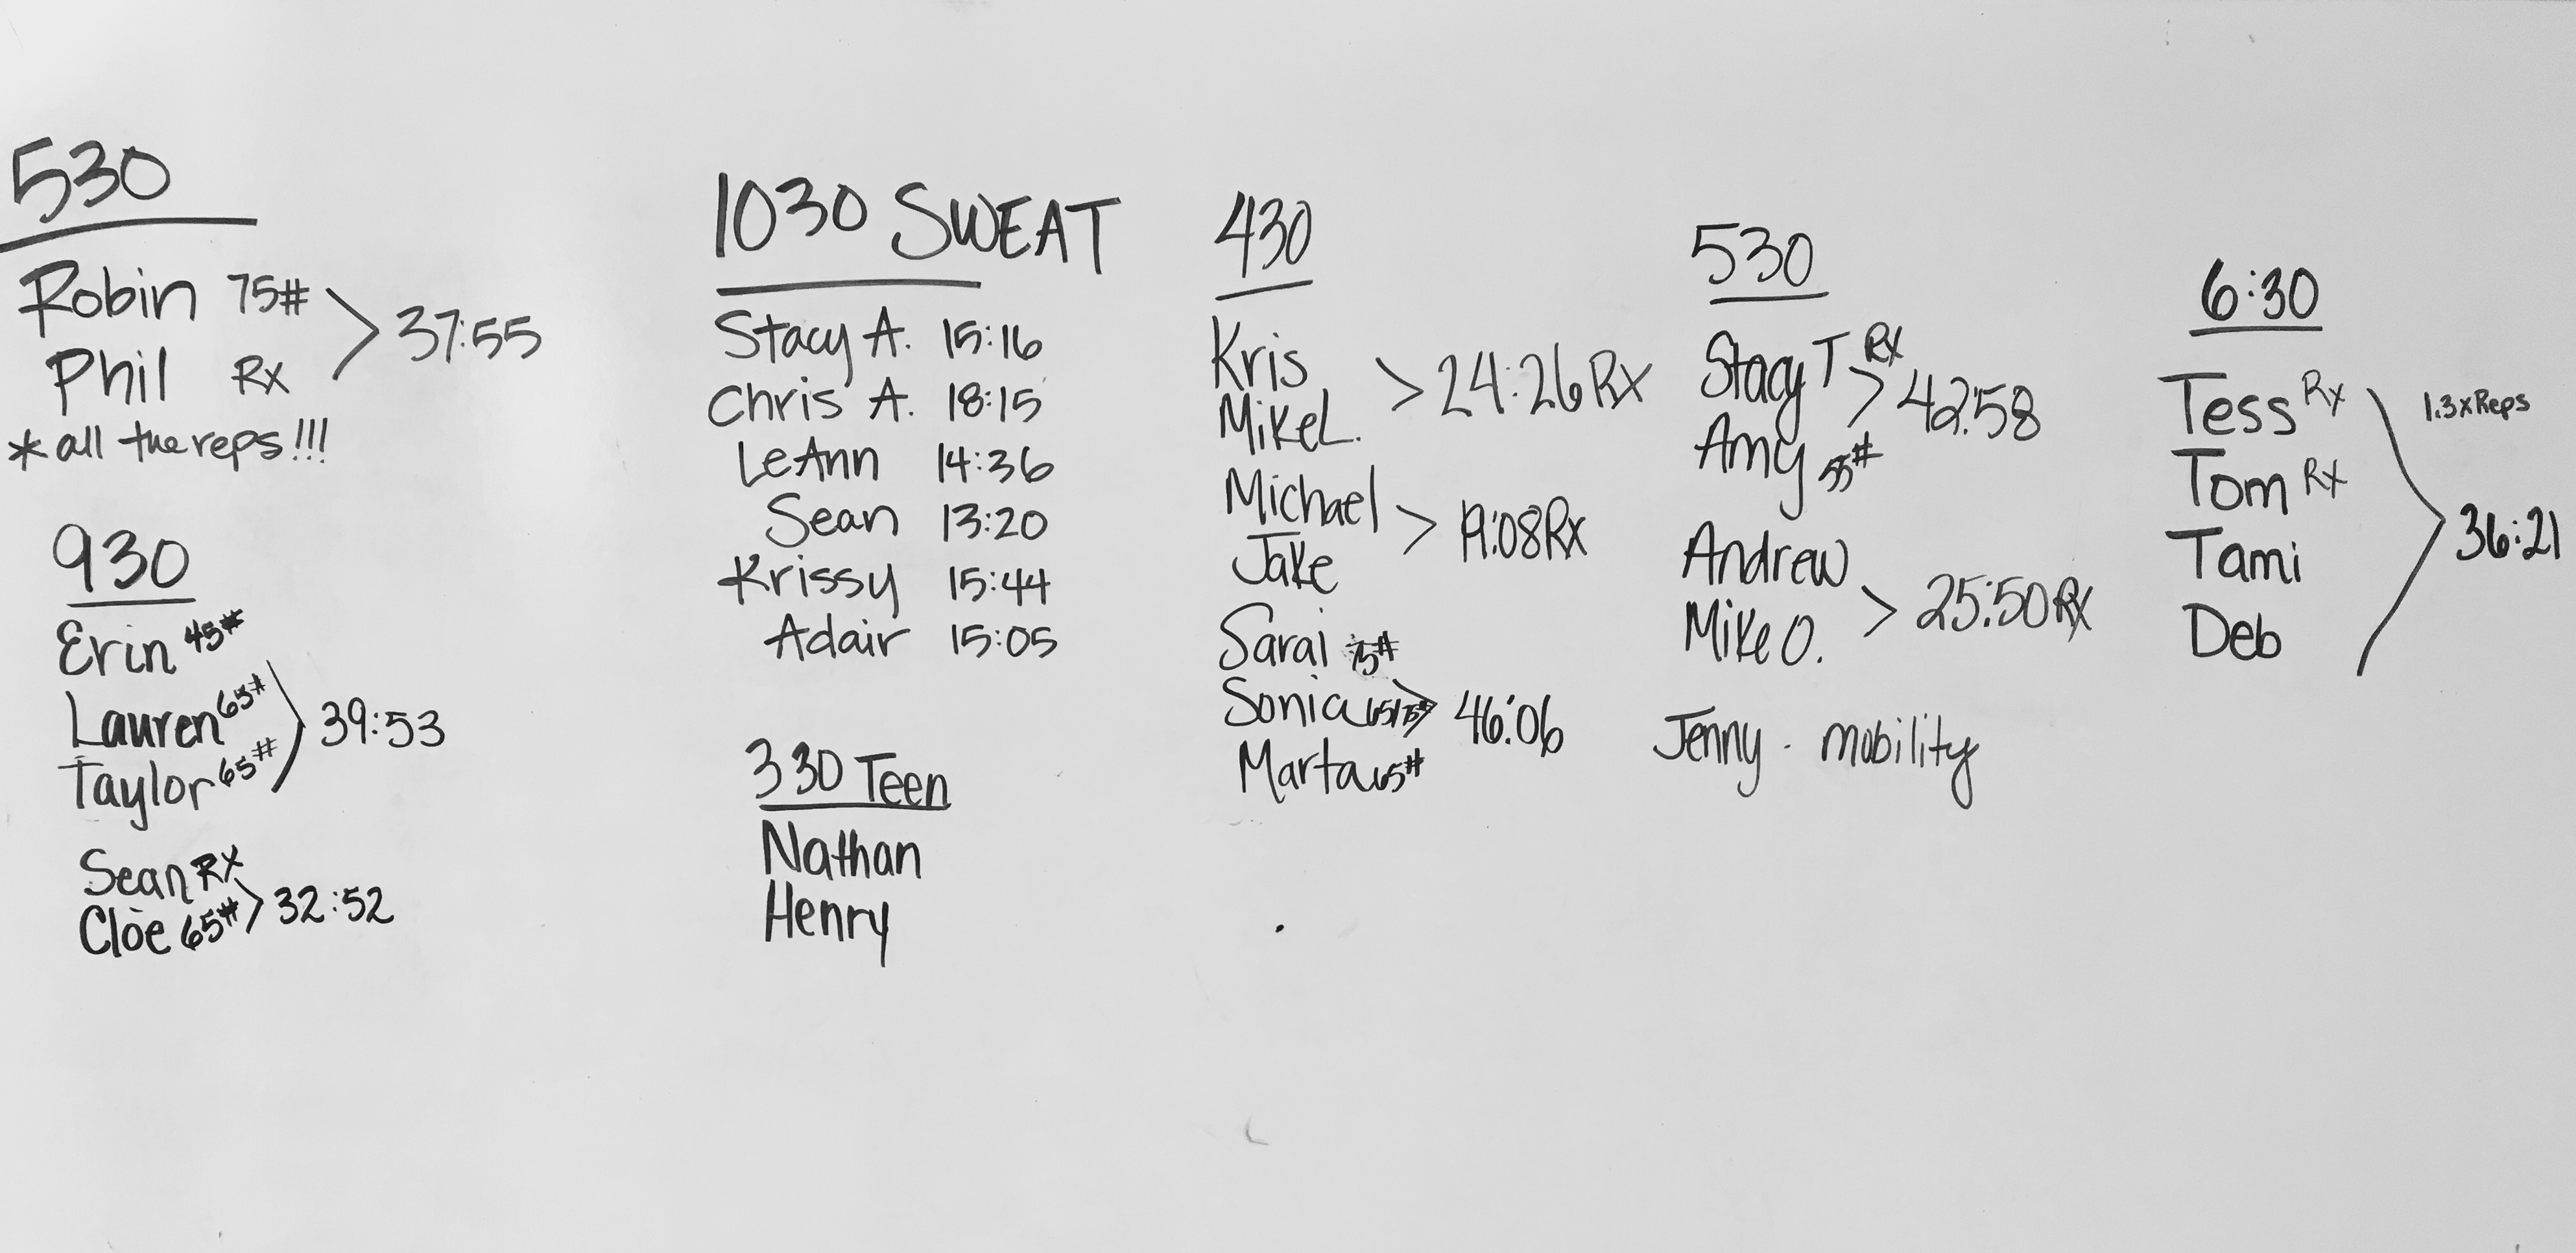 530
Robin 75# > 37:55
Phil Rx
* all the reps!!!
930
Erin 45#
Lauren 65# 39:53
Taylor 65#
Sean RX
Cloe 65# > 32:52
1030 SWEAT
Stacy A. 15:16
Chris A. 18:15
LeAnn 14:36
Sean 13:20
Krissy 15:44
Adair 15:05
330 Teen
Nathan
Henry
430
Kris > 24:26 Rx
Mike L.
Michael > 19:08 Rx
Jake
Sarai 75#
Sonia 65/75# > 46:06
Marta 65#
530
Stacy T RX > 42:58
Amy 55#
Andrew
Mike O. > 25:50 RX
Jenny - mobility
6:30
Tess Rx 1.3xReps
Tom RX
Tami 36:21
Deb